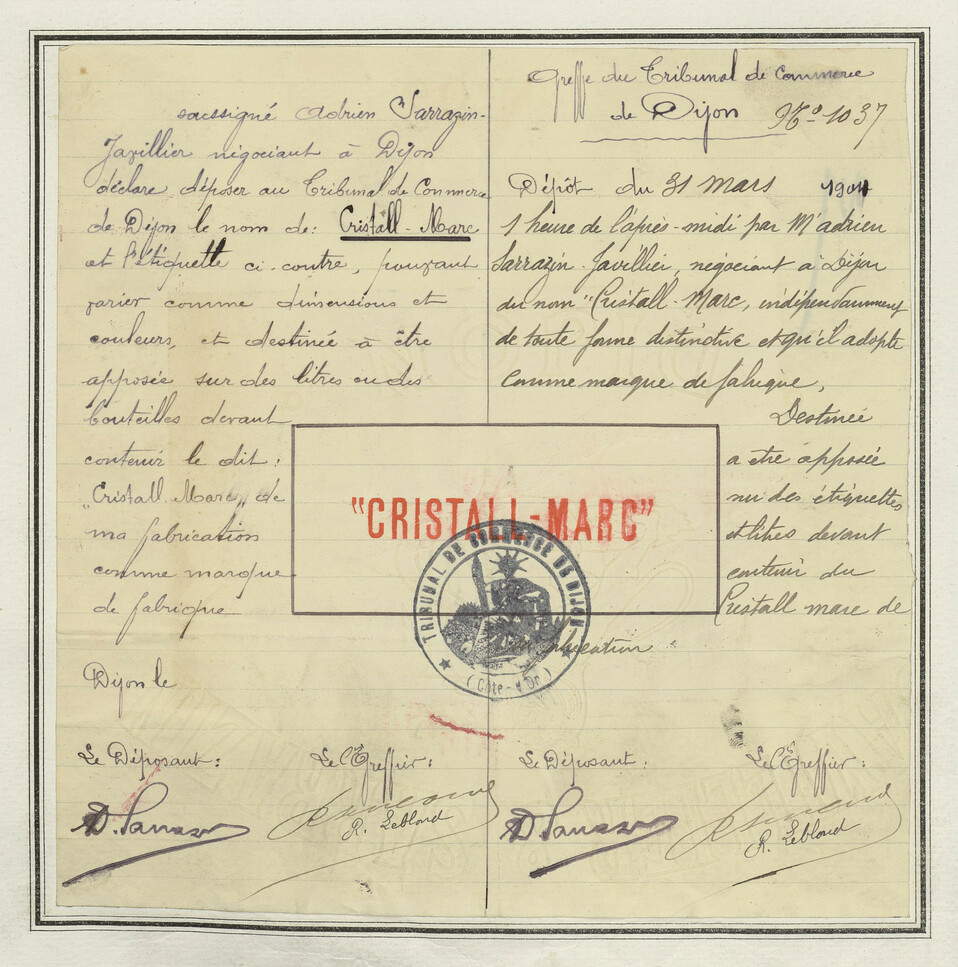 soussigné Adrien Sarrazin-
Javillier négociant à Dijon
déclare déposer au Tribunal de Commerce
de Dijon le nom de: Cristall-Marc
et l'étiquette ci-contre, pouvant
varier comme dimensions et
couleurs, et destinée à être
apposée sur des litres ou des
bouteilles devant
contenir le dit:
"Cristall Marc" de
ma fabrication
comme marque
de fabrique
Dijon le
Le Déposant:
Le Greffier:
R. Leblond
Greffe du Tribunal de Commerce
de Dijon No 1037
Dépôt du 31 mars 1904
1 heure de l'après-midi par M adrien
Sarrazin-Javillier, négociant à Dijon
du nom "Cristall-Marc, indépendamment
de toute forme distinctive et qu'il adopte
comme marque de fabrique,
Destinée
a etre apposée
des étiquettes
et litres devant
contenir du
Cristall marc de
fabrication
Le Déposant:
Le Greffier:
R. Leblond
"CRISTALL-MARC"
TRIBUNAL DE COMMERCE DE DIJON
(Côte-d'Or)